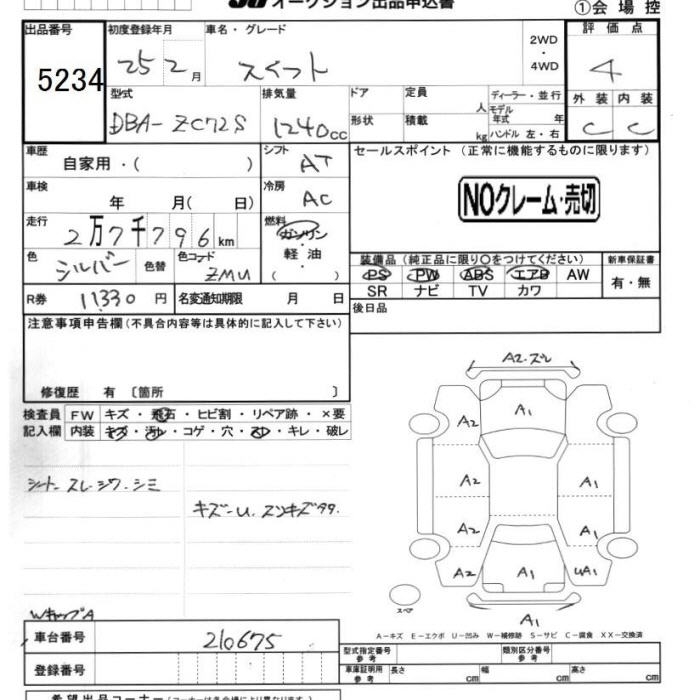 オークション出品申込書
①会場控
出品番号
5234
初度登録年月
25 2月
車名・グレード
スイフト
2WD
・
4WD
評価点
4
型式
DBA-ZC72S
排気量
1240cc
ドア
定員
人
ディーラー・並行
モデル
年式 年
形状
積載
kg
ハンドル 左・右
外装 内装
C C
車歴
自家用・( )
シフト
AT
セールスポイント (正常に機能するものに限ります)
車検
年 月( 日)
冷房
AC
NOクレーム・売切
走行
2万7千796km
燃料
ガソリン
・
軽油
・
( )
色
シルバー
色替
色コード
ZMU
装備品 (純正品に限り○をつけてください)
新車保証書
PS PW ABS エアB AW
SR ナビ TV カワ
有・無
R券
11330円
名変通知期限 月 日
後日品
注意事項申告欄 (不具合内容等は具体的に記入して下さい)
修復歴 有 〔箇所 〕
検査員
記入欄
FW キズ・飛石・ヒビ割・リペア跡・×要
内装 キズ・汚レ・コゲ・穴・スレ・キレ・破レ
シート スレ・シワ・シミ
キズー U.
WキャップA
A2.ズレ
A2
A1
A2
A1
A2
A1
A2
A1
UA1
A1
スペア
A-キズ E-エクボ U-凹み W-補修跡 S-サビ C-腐食 XX-交換済
車台番号
210675
登録番号
型式指定番号
参考
類別区分番号
参考
車庫証明用
参考
長さ cm 幅 cm 高さ cm
希望出品コーナー